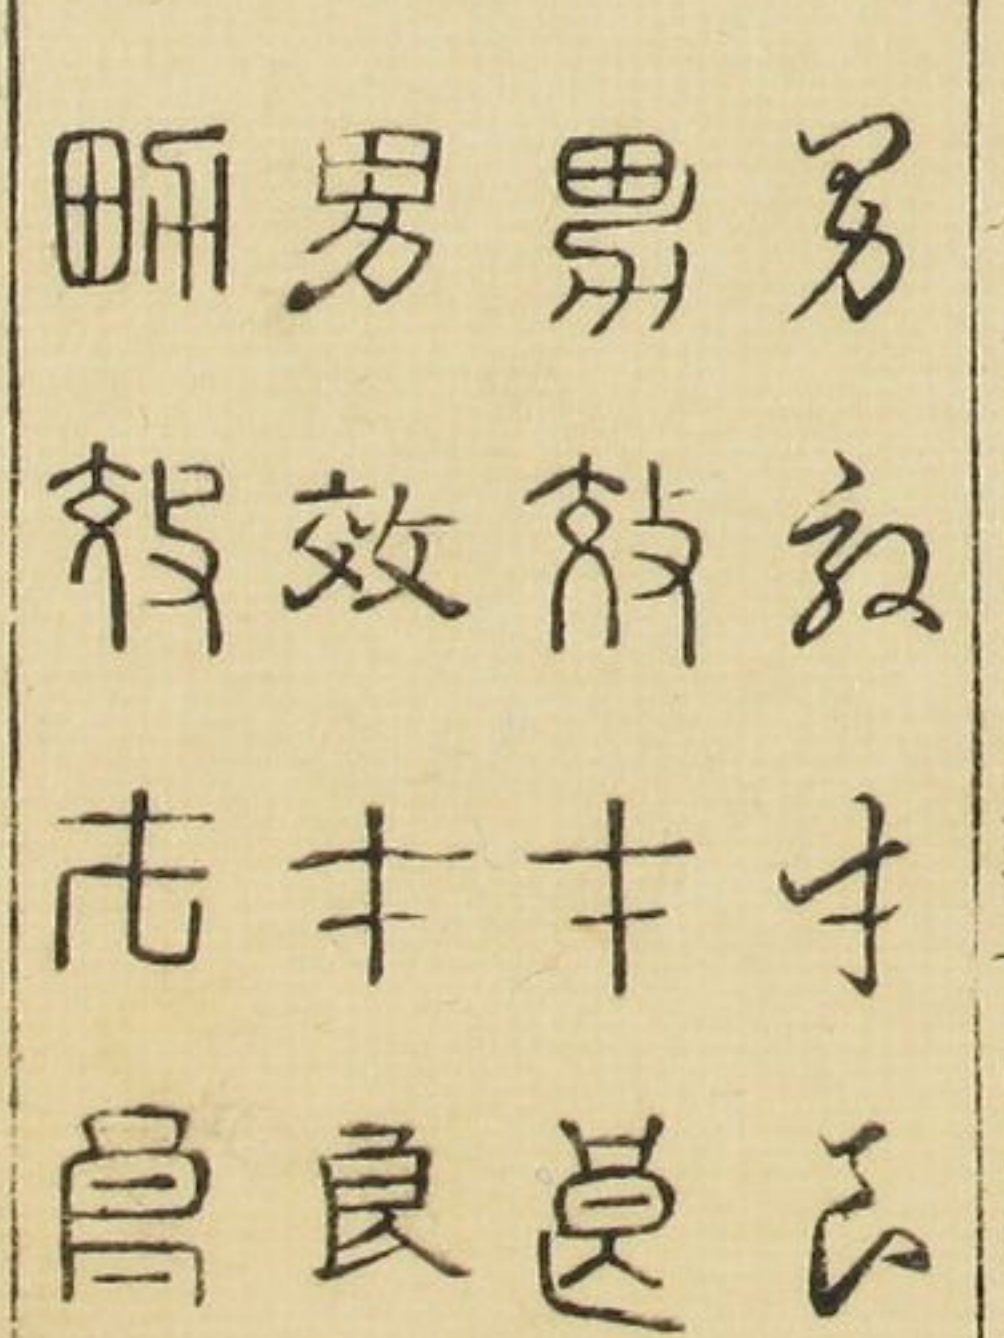 男效才良
男效才良
男效才良
男效才良